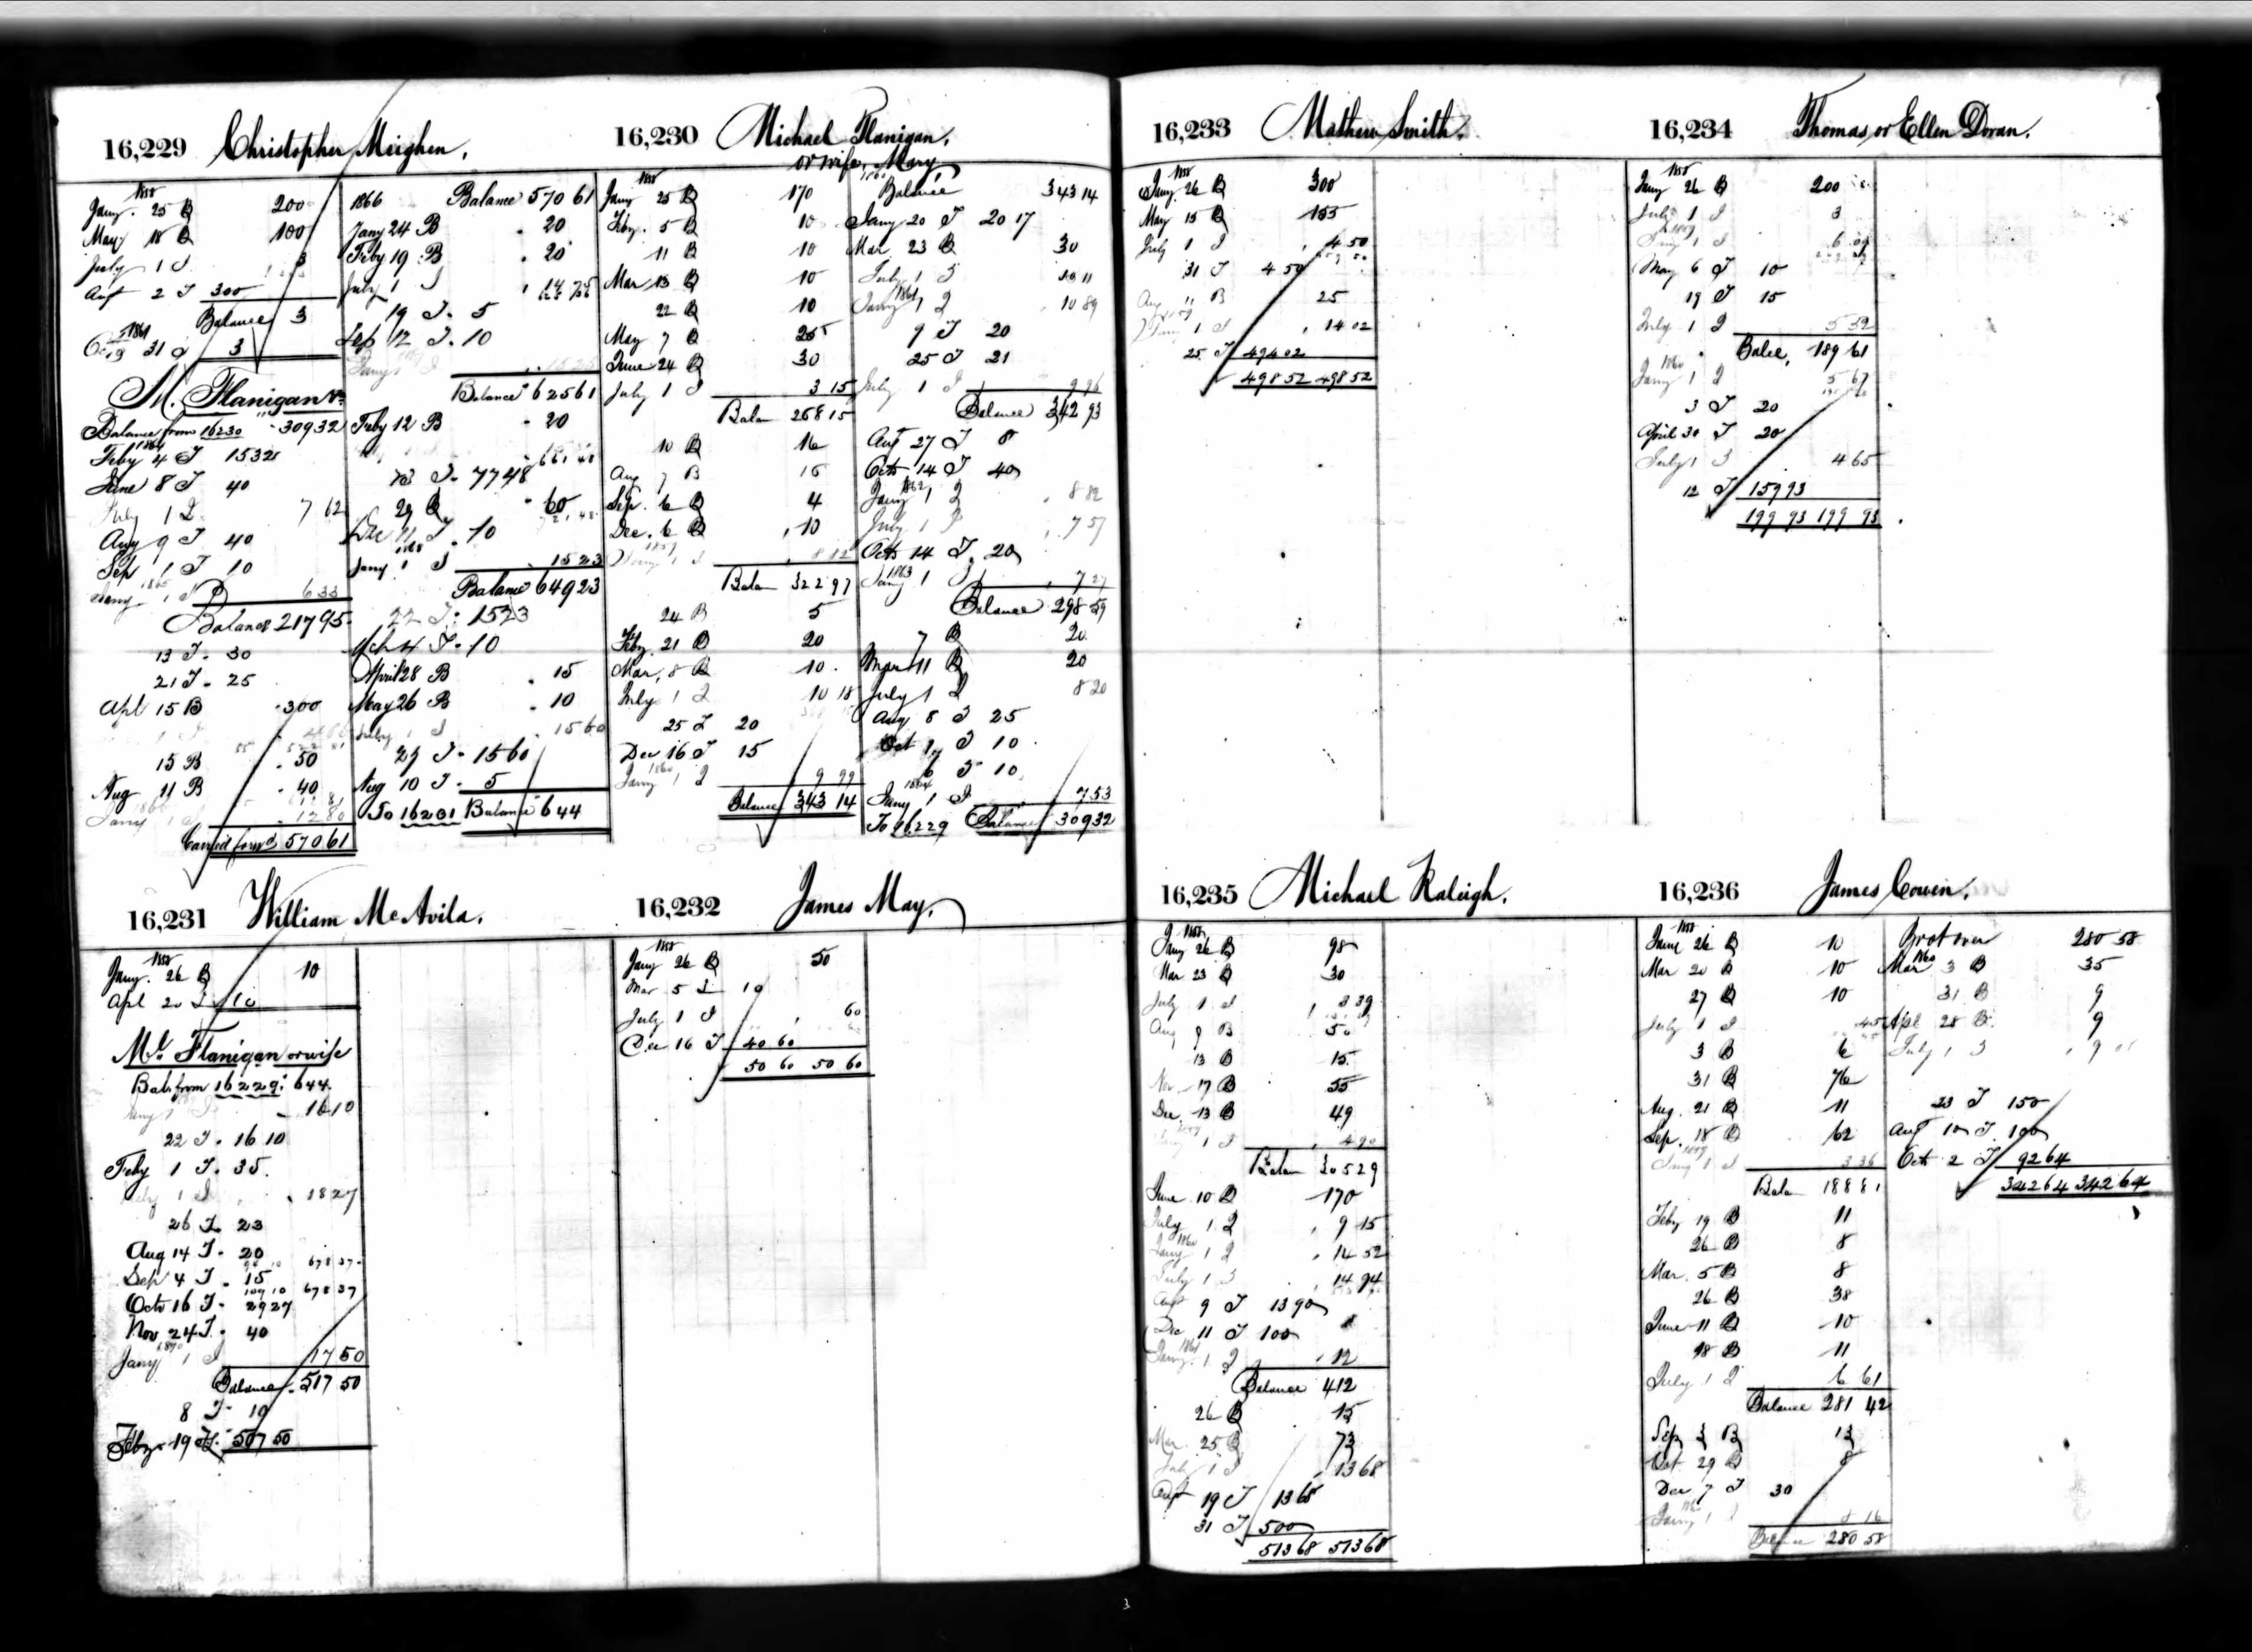 16,229 Christopher Meighen.
1858
Jany. 25 B 200
May 18 B 100
July 1 I 3
Augt 2 T 300
Balance 3
1861
Oct 31 T 3
M. Flanigan
Balance from 16230 309 32
1864
Feby 4 T 15 32
June 8 T 40
July 1 I 7 62
Aug 9 T 40
Sep 1 T 10
1865
Jany 1 I 6 33
Balance 217 95
13 T 30
21 T 25
Apl 15 B 300
1 I
15 B 50
Aug 11 B 40
1866
Jany 1 I 12 80
Carried forwd 570 61
1866 Balance 570 61
Jany 24 B 20
Feby 19 B 20
July 1 I
19 T 5
Sep 12 T 10
Jany 1 I
Balance 625 61
Feby 12 B 20
T 77 48
29 B 60
Dec 11 T 10
1868
Jany 1 I 15 23
Balance 649 23
22 T 15 23
Mch 4 T 10
April 28 B 15
May 26 B 10
July 1 I 15 60
29 T 15 60
Aug 10 T 5
To 16231 Balance 644
16,230 Michael Flanigan.
or wife, Mary
1858
Jany 25 B 170
Feby. 5 B 10
11 B 10
Mar 13 B 10
22 B 10
May 7 B 25
June 24 B 30
July 1 I 3 15
Balan 268 15
10 B 16
Aug 7 B 16
Sep. 6 B 4
Dec. 6 B 10
1859
Jany 1 I 8 82
Balan 322 97
24 B 5
Feby. 21 B 20
Mar. 8 B 10
July 1 I 10 18
25 T 20
Dec 16 T 15
1860
Jany 1 I 9 99
Balance 343 14
1860
Balance 343 14
Jany 20 T 20 17
Mar. 23 B 30
July 1 I 10 11
1861
Jany 1 I 10 89
9 T 20
25 T 21
July 1 I 9 96
Balance 342 93
Aug 27 T 8
Octr 14 T 40
1862
Jany 1 I 8 82
July 1 I 7 57
Octr 14 T 20
1863
Jany 1 I 7 27
Balance 298 59
7 B 20
Mar 11 B 20
July 1 I 8 20
Aug 8 T 25
Oct 1 T 10
6 T 10
1864
Jany 1 I 7 53
To 16229 Balance 309 32
16,231 William McAvila.
1858
Jany. 26 B 10
Apl 20 T 10
Ml. Flanigan or wife
Bal. from 16229: 644
Jany 1 I 16 10
22 T 16 10
Feby 1 T 35
July 1 I 18 27
26 T 23
Aug 14 T 20
Sep 4 T 15
Octr 16 T 29 27
Nov 24 T 40
1870
Jany 1 I 17 50
Balance 517 50
8 T 10
Feby 19 T 507 50
16,232 James May.
1858
Jany 26 B 50
Mar 5 T 10
July 1 I 60
Dec 16 T 40 60
50 60 50 60
16,233 Mathew Smith.
1858
Jany. 26 B 300
May 15 B 155
July 1 I 4 50
31 T 4 50
Aug 11 B 25
1859
Jany 1 I 14 02
25 T 494 02
498 52 498 52
16,234 Thomas or Ellen Doran.
1858
Jany 26 B 200
July 1 I 3
1859
Jany 1 I 6 09
May 6 T 10
19 T 15
July 1 I 5 52
Balce. 189 61
1860
Jany 1 I 5 67
3 T 20
April 30 T 20
July 1 I 4 65
12 T 159 93
199 93 199 93
16,235 Michael Raleigh.
1858
Jany 26 B 98
Mar 23 B 30
July 1 I 3 39
Aug 9 B 50
13 B 15
Nov. 17 B 55
Dec. 13 B 49
1859
Jany 1 I 4 90
Balan 305 29
June 10 B 170
July 1 I 9 15
1860
Jany 1 I 14 52
July 1 I 14 94
Augt 9 T 13 90
Dec 11 T 100
1861
Jany. 1 I 12
Balance 412
26 B 15
Mar. 25 B 73
July 1 I 13 68
Augt 19 T 13 68
31 T 500
513 68 513 68
16,236 James Cowen.
1858
Jany 26 B 10
Mar 20 B 10
27 B 10
July 1 I 45
3 B 6
31 B 76
Aug. 21 B 11
Sep. 18 B 62
1859
Jany 1 I 3 36
Balan 188 81
Feby 19 B 11
26 B 8
Mar. 5 B 8
26 B 38
June 11 B 10
18 B 11
July 1 I 6 61
Balance 281 42
Sep 3 B 13
Oct 29 B 8
Dec 7 T 30
1860
Jany 1 I 8 16
Balance 280 58
Brot over 280 58
1860
Mar 3 B 35
31 B 9
Apl 28 B 9
July 1 I 9
23 T 150
Augt 10 T 100
Octr 2 T 92 64
342 64 342 64
3